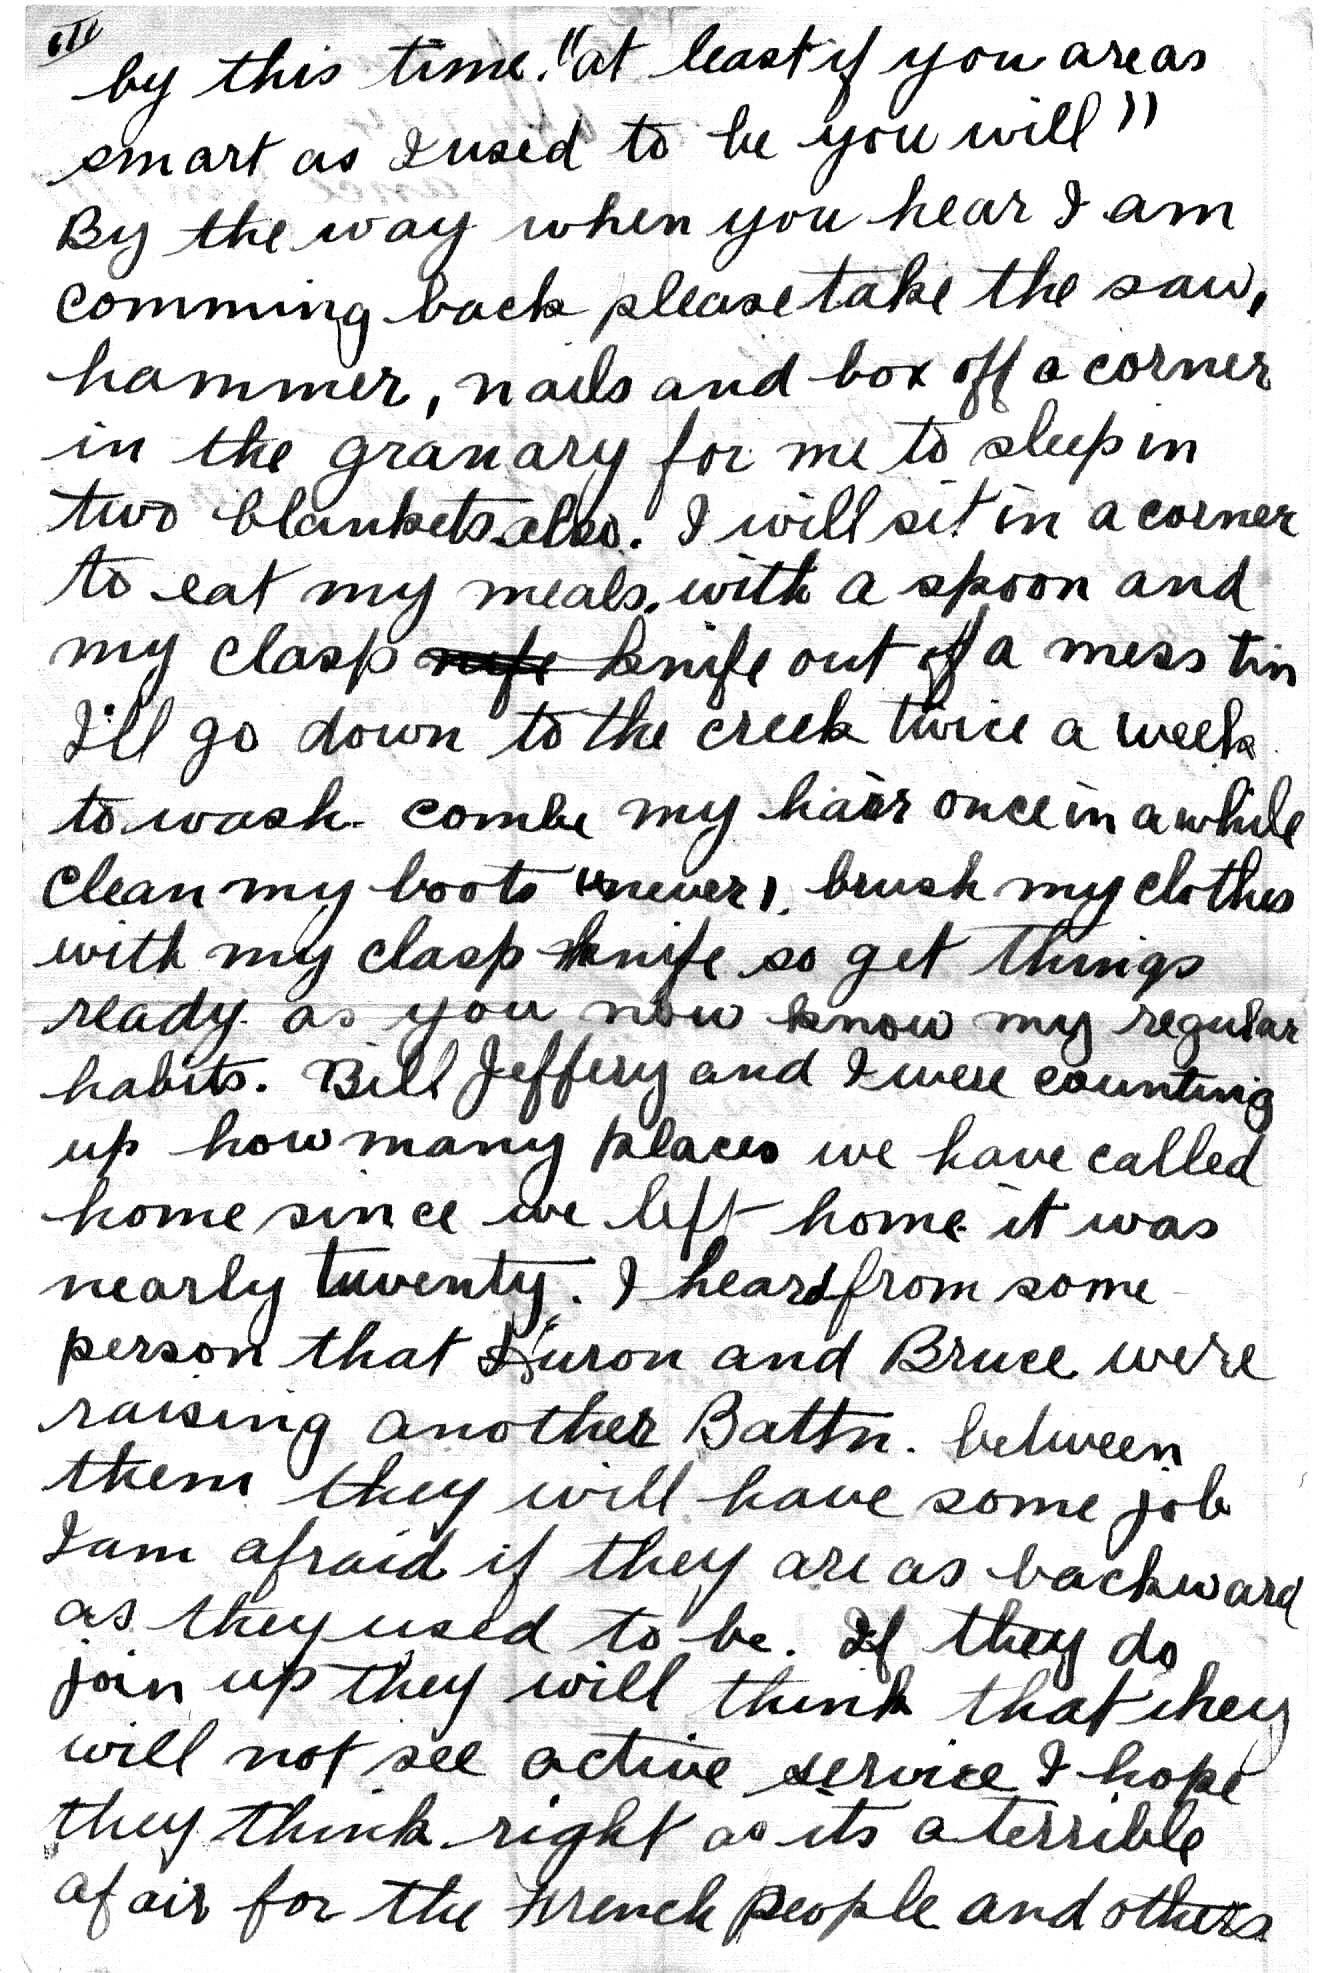 by this time. "at least if you are as
smart as I used to be you will"
By the way when you hear I am
comming back please take the saw,
hammer, nails and box off a corner
in the granary for me to sleep in
two blankets also. I will sit in a corner
to eat my meals. with a spoon and
my clasp knife out of a mess tin
I'll go down to the creek twice a week
to wash. combe my hair once in a while
clean my boots "never". brush my clothes
with my clasp knife so get things
ready. as you now know my regular
habits. Bill Jeffery and I were counting
up how many places we have called
home since we left home. it was
nearly tuventy. I heard from some
person that Huron and Bruce were
raising another Battn. between
them they will have some job
I am afraid if they are as backward
as they used to be. If they do
join up they will think that they
will not see active service I hope
they think right as its a terrible
afair for the French people and others